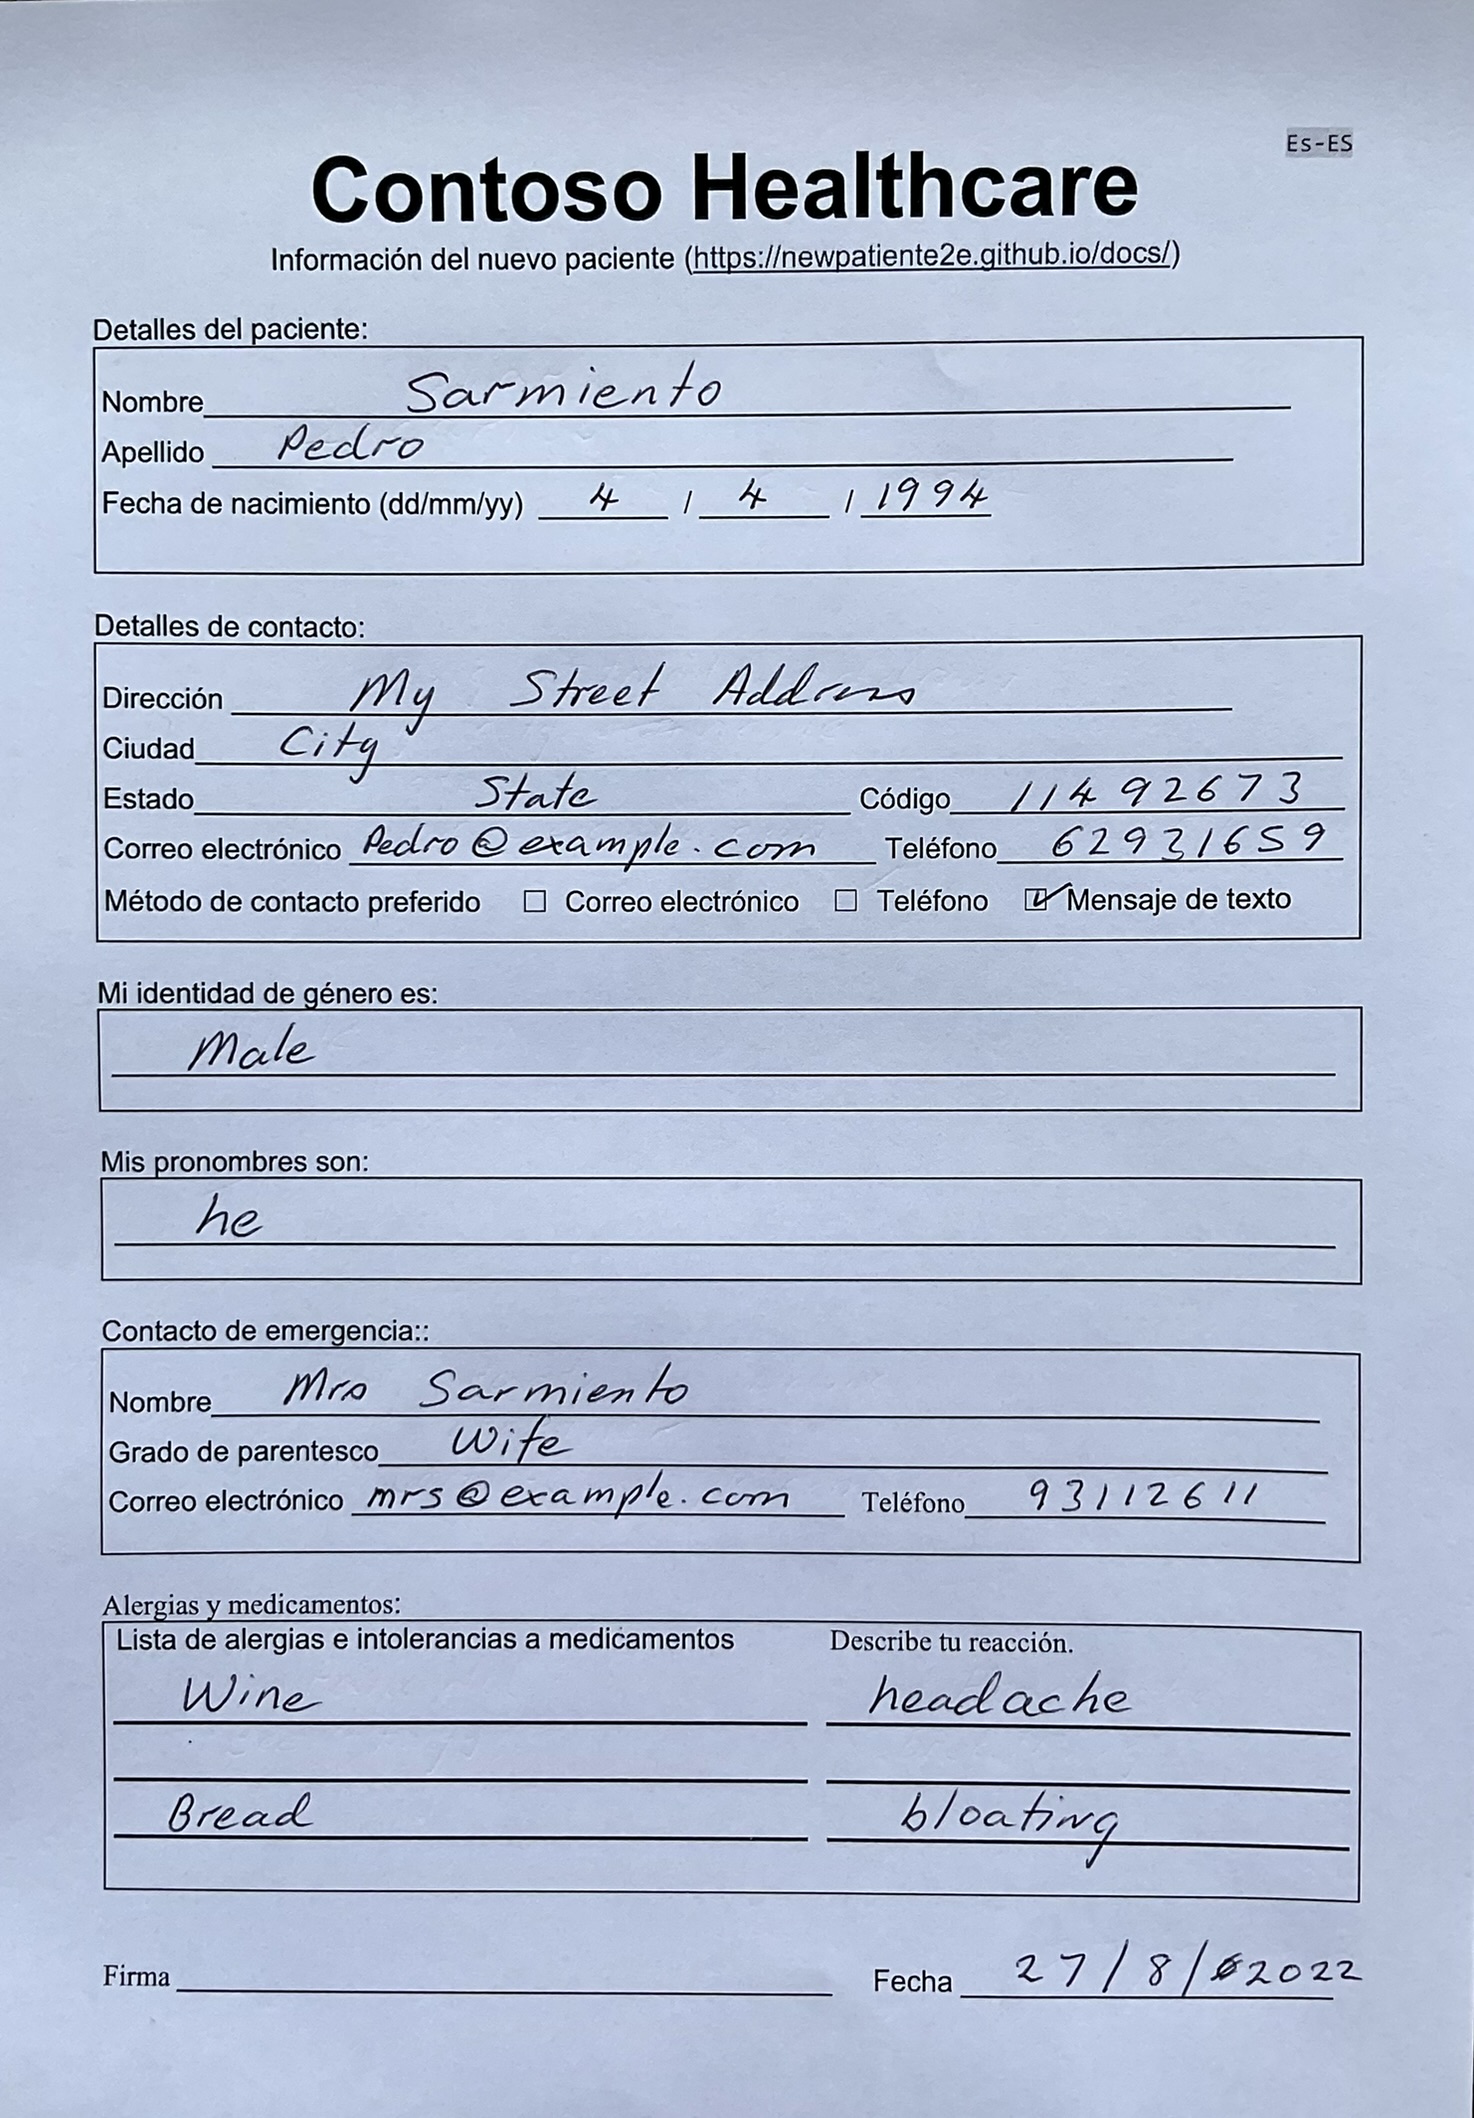 Es-ES
Contoso Healthcare
Información del nuevo paciente (https://newpatiente2e.github.io/docs/)
Detalles del paciente:
Nombre Sarmiento
Apellido Pedro
Fecha de nacimiento (dd/mm/yy) 4 / 4 / 1994
Detalles de contacto:
Dirección My Street Address
Ciudad City
Estado State Código 11492673
Correo electrónico Pedro@example.com Teléfono 62931659
Método de contacto preferido ☐ Correo electrónico ☐ Teléfono ☑ Mensaje de texto
Mi identidad de género es:
Male
Mis pronombres son:
he
Contacto de emergencia::
Nombre Mrs Sarmiento
Grado de parentesco Wife
Correo electrónico mrs@example.com Teléfono 93112611
Alergias y medicamentos:
Lista de alergias e intolerancias a medicamentos Describe tu reacción.
Wine headache
Bread bloating
Firma Fecha 27/8/2022